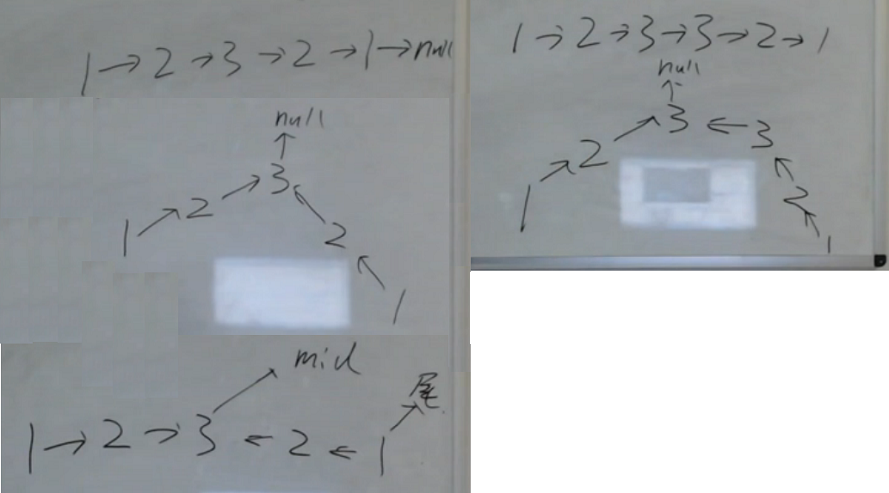 1→2→3→2→1→null
null
↑
1→2→3←2←1
mid
尾
1→2→3←2←1
1→2→3→3→2→1
null
↑
1→2→3←3←2←1